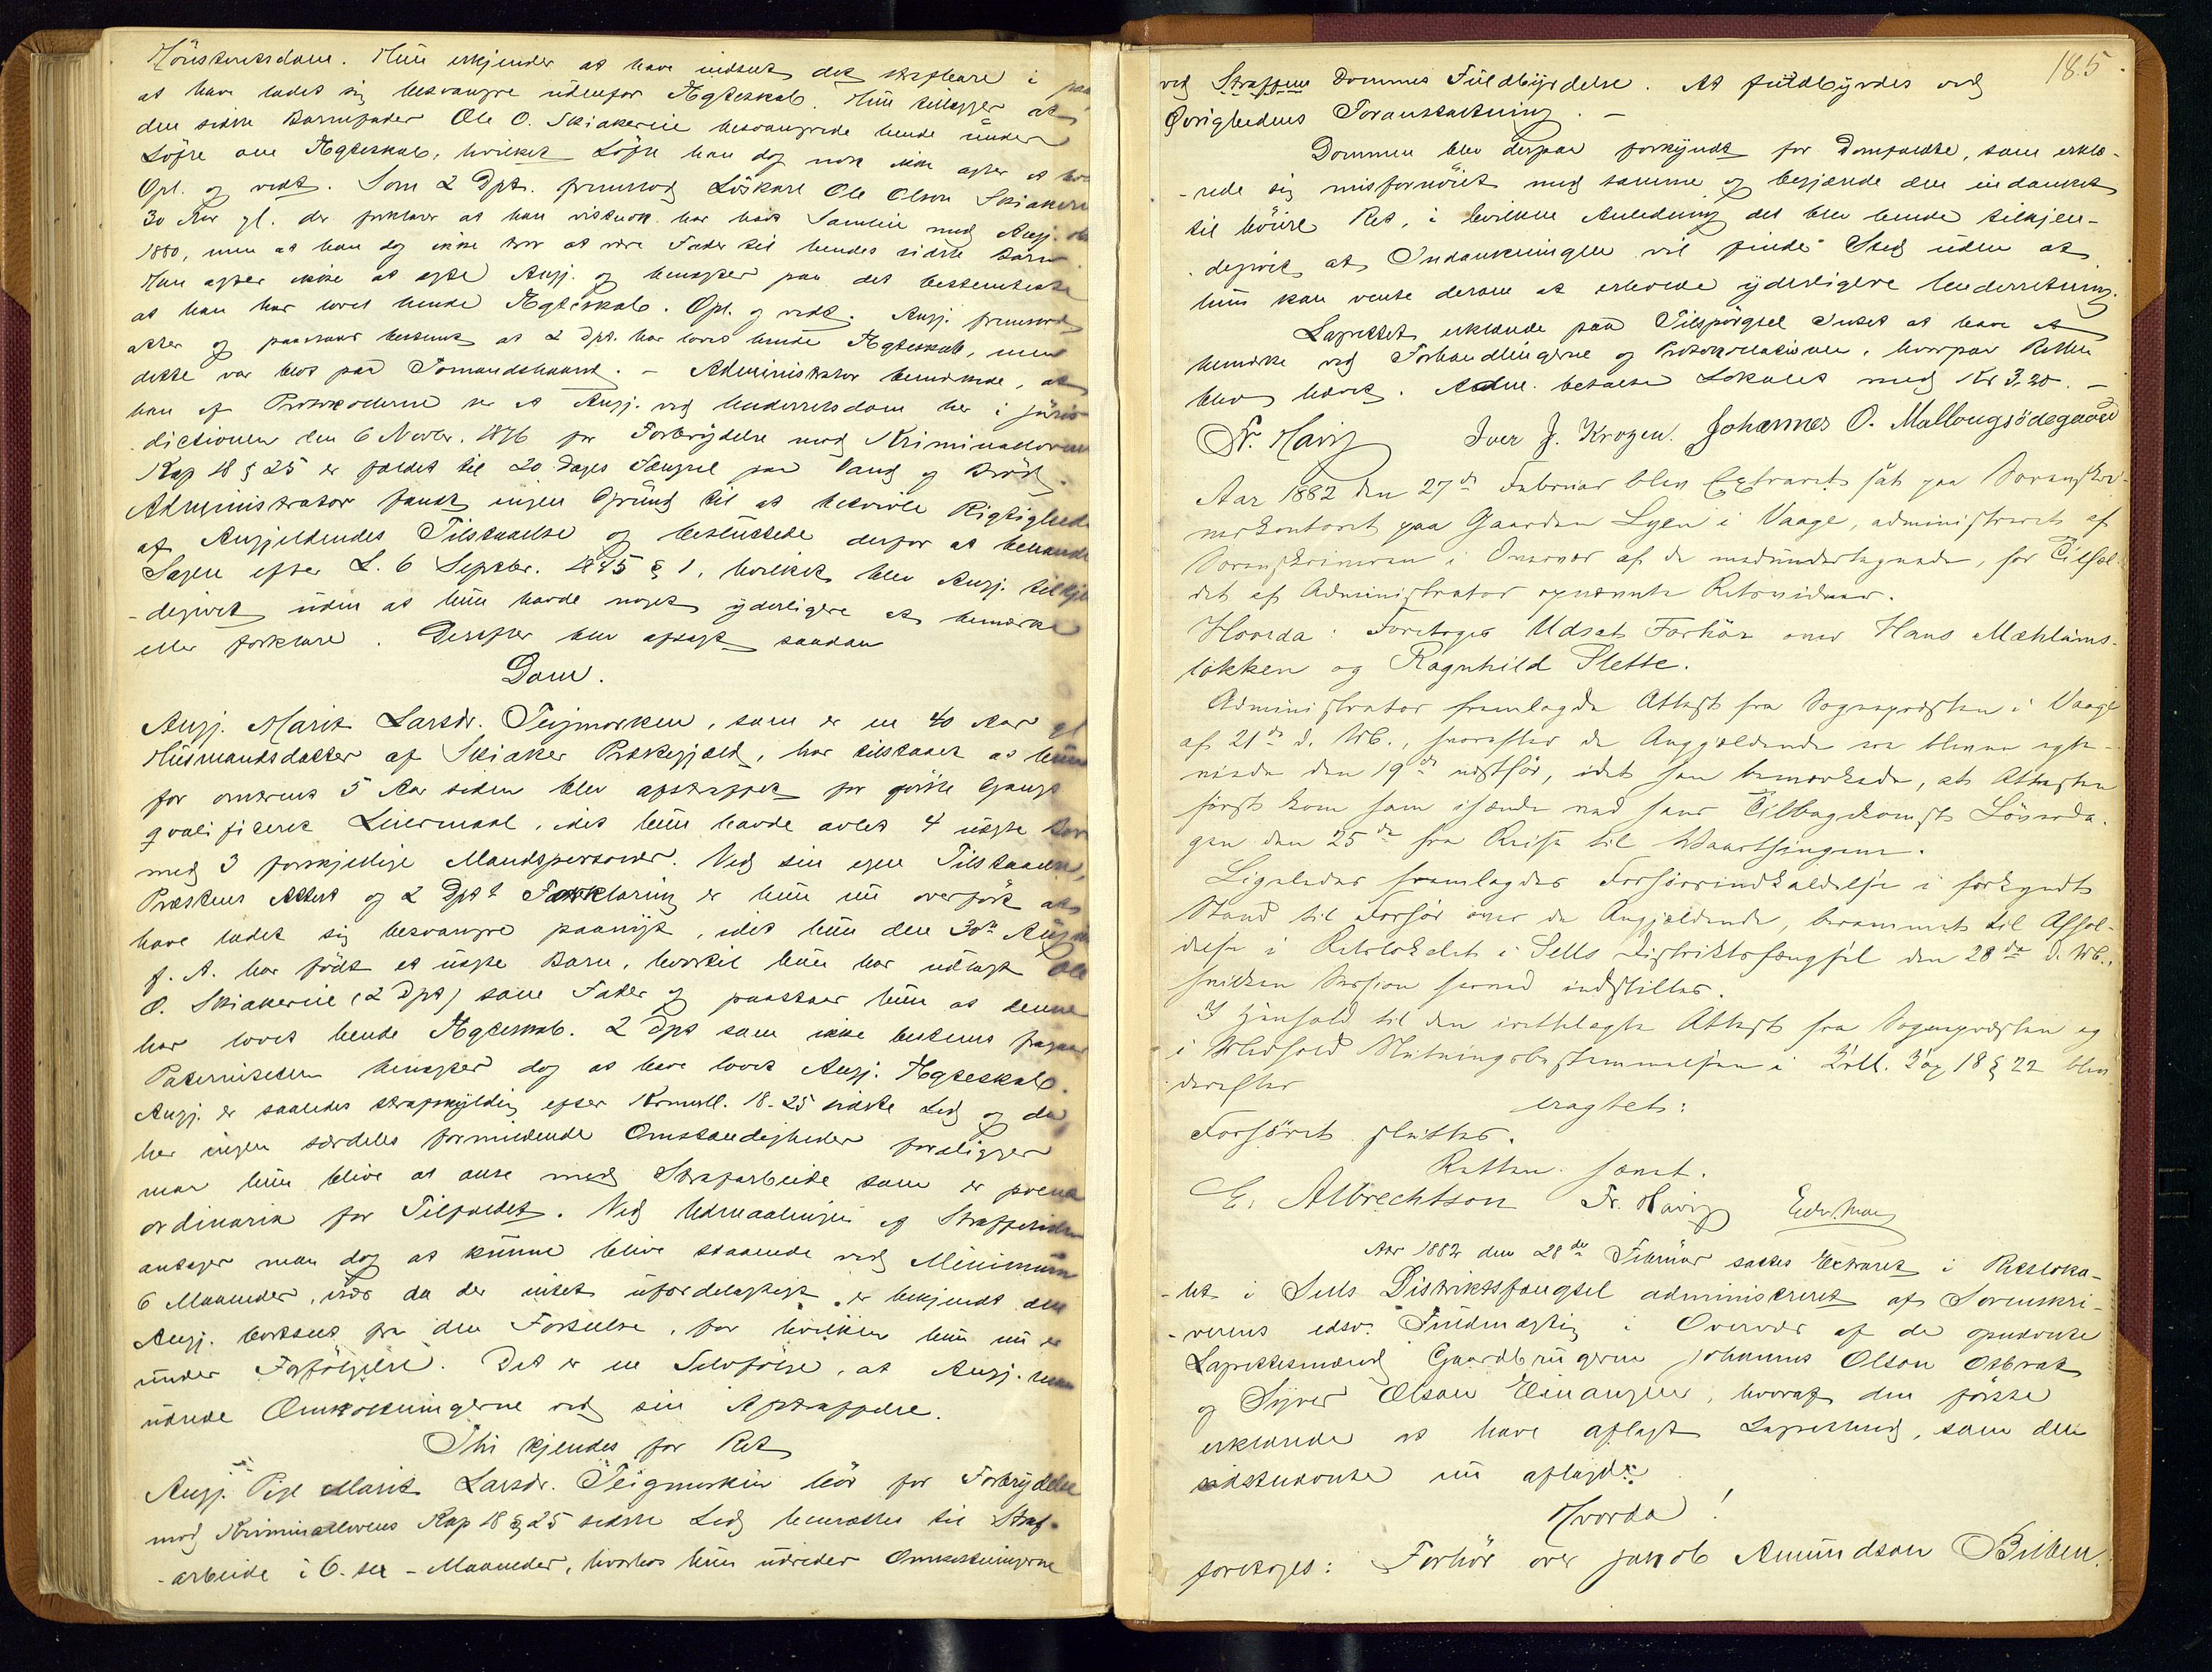 Höiesteretsdom. Hun erkjender at have indseet det strafbare i
at have ladet sig besvangre udenfor Ægteskab. Hun tillægger at
den sidste Barnefader Ole O. Skiakerlie besvangrede hende under
Löfte om Ægteskab, hvilket Löfte han dog nok ikke agter at
Opl. og vedt. Som 2 Dpt. fremstod Löskarl Ole Olson Skiaker
30 Aar gl. der forklarer at han vistnok har havt Samleie med Angj.
1880, men at han dog ikke tror at være Fader til hendes sidste Barn.
Han agter ikke at ægte Angj. og benægter paa det bestemteste
at han har lovet hende Ægteskab. Opl. og vedt. Angj. fremstod
atter og paastaar bestemt at 2 Dpt. har lovet hende Ægteskab, men
dette var blot paa Tomandshaand. – Administrator bemærkede, at
han af Protokollerne ser at Angj. ved Underretsdom her i Juris-
dictionen den 6 Novbr. 1876 for Forbrydelse mod Kriminalloven
Kap 18 § 25 er fældet til 20 Dages Fængsel paa Vand og Bröd.
Administrator fandt ingen Grund til at betvivle Rigtighed
af Angjeldendes Tilstaaelse og besluttede derfor at behandle
Sagen efter L. 6 Septbr. 1845 § 1, hvilket blev Angj. tilkje
-degivet uden at hun havde noget yderligere at bemærke
eller forklare. Derefter blev afsagt saadan
Dom.
Angj. Marit Larsdr. Teigmorken, som er en 40 Aar gl
Huusmandsdatter af Skiaker Præstegjæld, har tilstaaet at hun
for omtrent 5 Aar siden blev afstraffet for første Gangs
qvalificeret Leiermaal, idet hun havde avlet 4 uægte
med 3 forskjellige Mandspersoner. Ved sin egen Tilstaaelse,
Præstens Attest og 2 Dpts Forklaring er hun nu overført at
have ladet sig besvangre paanyt, idet hun den 30te
f. A. har födt et uægte Barn, hvortil hun har udlagt Ole
O. Skiakerlie (2 Dpt) som Fader og paastaar hun at denne
har lovet hende Ægteskab. 2 Dpt som ikke bestemt fragaar
Paterniteten benægter dog at have lovet Angj. Ægteskab.
Angj. er saaledes strafskyldig efter Krmll. 18-25 sidste Led og da
her ingen særdeles formildende Omstændigheder foreligger
maa hun blive at anse med Strafarbeide som er poena
ordinaria for Tilfældet. Ved Udmaalingen af Straffetiden
antager man dog at kunne blive staaende ved Minimum
6 Maaneder, især da der intet ufordelagtigt er bekjendt om
Angj. bortseet fra den Forseelse, for hvilken hun nu er
under Forfölgelse. Det er en Selvfölge, at Angj. maa
udrede Omkostningerne ved sin Afstraffelse.
Thi kjendes for Ret
Angj. Pige Marit Larsdr. Teigmorken bör for Forbrydelse
mod Kriminallovens Kap 18 § 25 sidste Led hensættes til Straf-
-arbeide i 6. sex – Maaneder, hvorhos hun udreder Omkostningerne
185.
ved Straffens Dommes Fuldbyrdelse. At fuldbyrdes ved
Øvrighedens Foranstaltning. –
Dommen blev derpaa forkyndt for Domfældte, som erklæ-
-rede sig misfornöiet med samme og begjærede den indanket
til höiere Ret, i hvilken Anledning det blev hende tilkjen-
-degivet at Indankningen vil finde Sted uden at
hun kan vente derom at erholde yderligere Underretning.
Lagrettet erklærede paa Tilspörgsel Intet at have at
bemærke ved Forhandlingerne og Protokollationen, hvorpaa Retten
blev hævet. Adm. betalte Lokalet med Kr 3,20. –
Fr. Havig Iver J. Krogen. Johannes O. Mallougsödegaard
Aar 1882 den 27de Februar blev Extraret sat paa Sorenskri-
verkontoret paa Gaarden Lyen i Vaage, administreret af
Sorenskriveren i Overvær af de medundertegnede, for Tilfæl-
det af Administrator opnævnte Retsvidner.
Hvorda: Foretoges Udsat Forhör over Hans Mæhlums-
løkken og Ragnhild Slette.
Administrator fremlagde Attest fra Sognepræsten i Vaage
af 21de d. M., hvorefter de Angjældende ere blevne ægte-
viede den 19de næstför, idet han bemærkede, at Attesten
först kom ham ihænde ved hans Tilbagekomst Löverda-
gen den 25de fra Reise til Vaartingene.
Ligeledes fremlagdes Forhörsindkaldelse i forkyndt
Stand til Forhör over de Angjældende, berammet til Afhol-
delse i Retslokalet i Sells Distriktsfængsel den 28de d. M.,
hvilken Session herved indstilles.
I Henhold til den irettelagte Attest fra Sognepræsten og
i Medhold Slutningsbestemmelsen i Krll. Kap 18 § 22 blev
derefter
eragtet:
Forhöret sluttes.
Retten hævet.
E. Albrechtson Fr. Havig
Aar 1882 den 28de Februar sattes Extraret i Retsloka-
-let i Sells Distriktsfængsel administreret af Sorenskri-
-verens edsv. Fuldmægtig i Overvær af de opnævnte
Lagrettesmænd Gaardbrugerne Johannes Olson Otbrat
og Syver Olson Einangen, hvoraf den förste
erklærede at have aflagt Lagretteed, som den
sidstnævnte nu aflagde:
Hvorda!
foretoges: Forhör over Jakob Amundson Bilben.